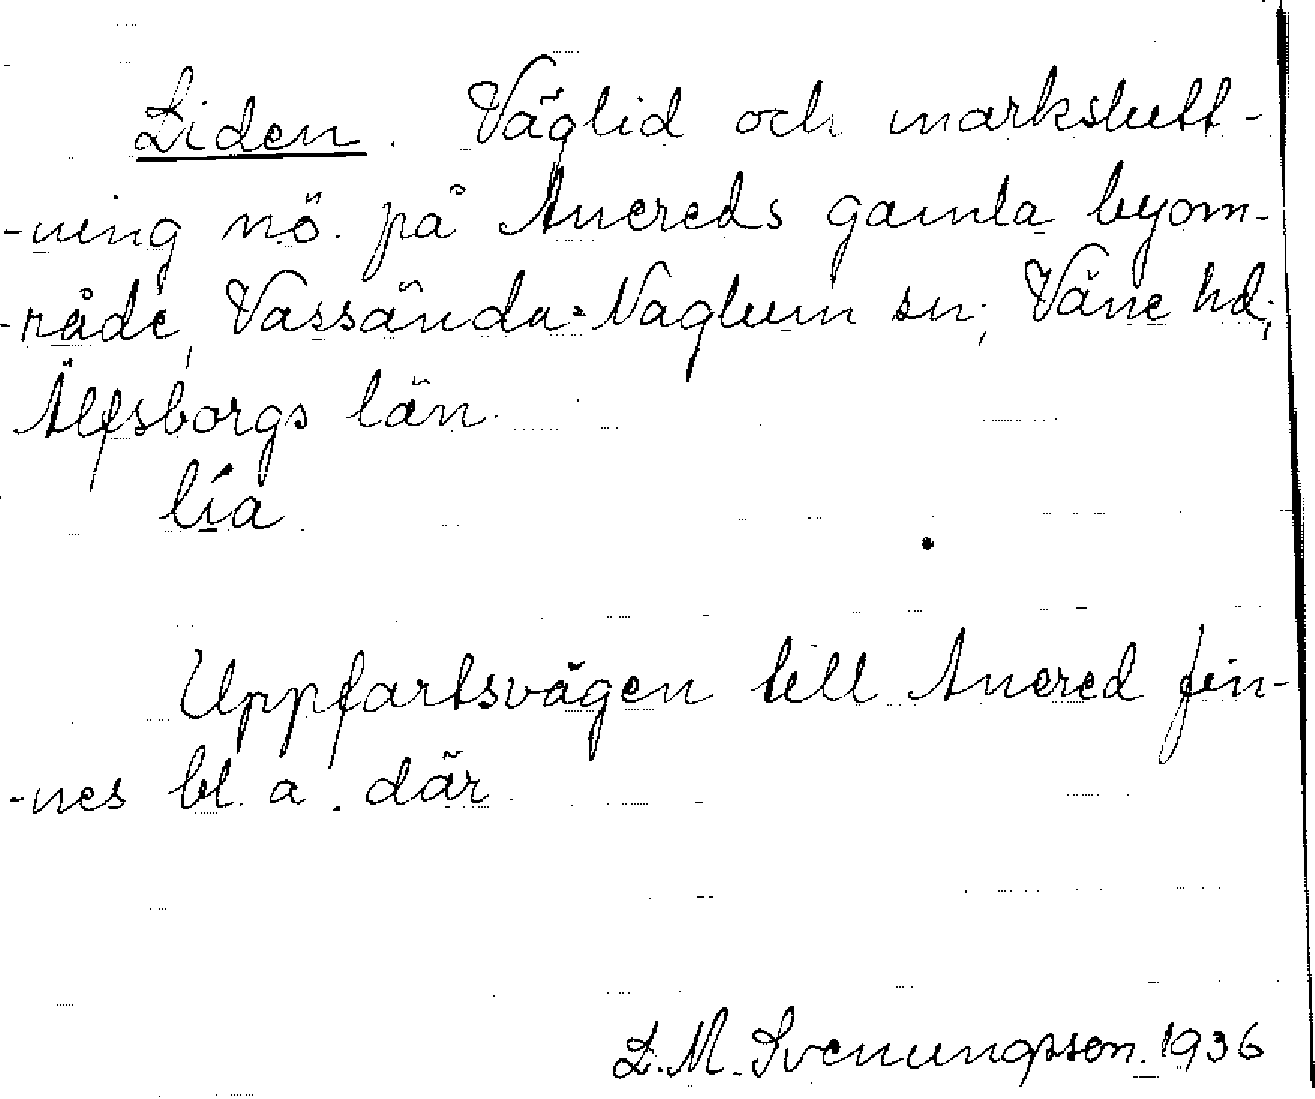 Liden. Väglid och markslutt-
-ning nö. på Anereds gamla byom-
-råde, Vassända-Naglum sn; Väne hd;
Älfsborgs län.
lía
Uppfartsvägen till Anered fin-
-nes bl. a. där
L. M. Svenungsson. 1936